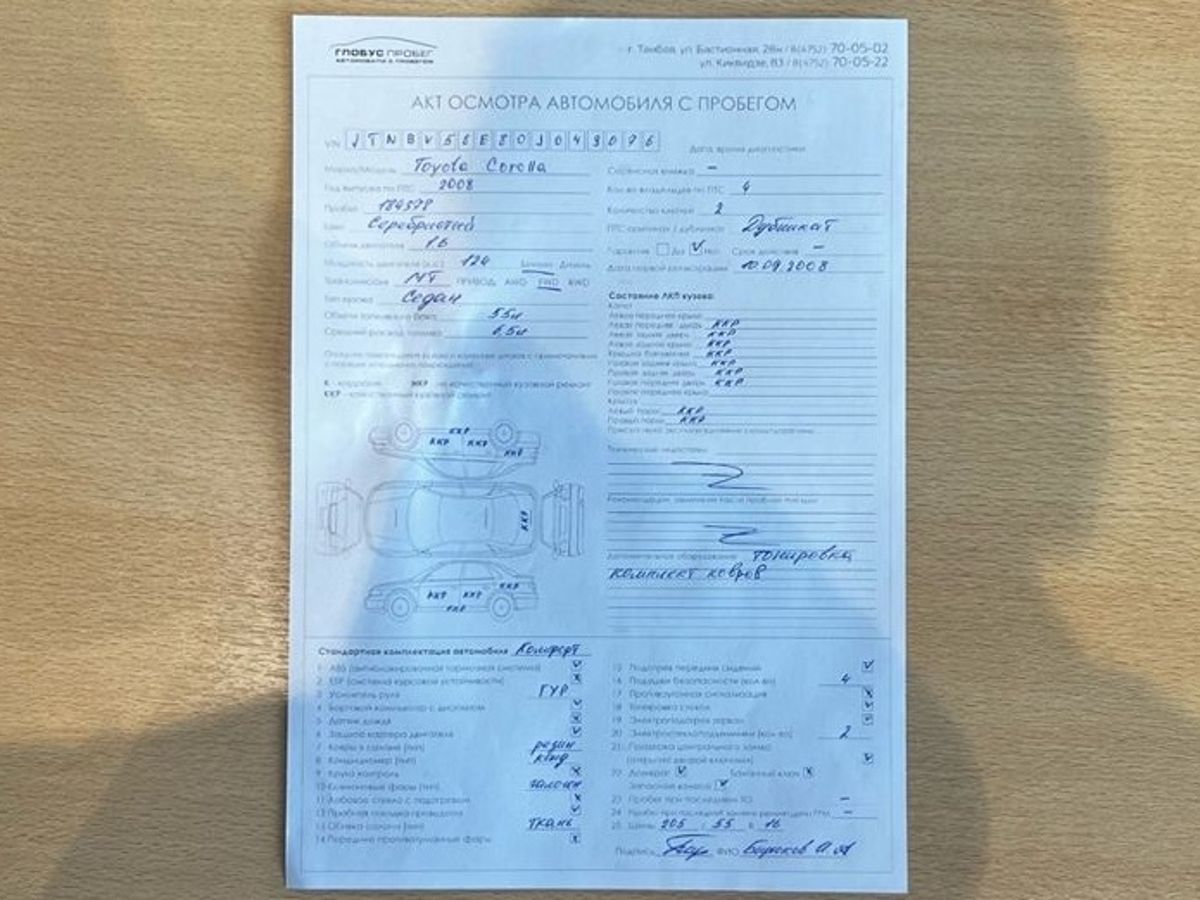 ГЛОБУС ПРОБЕГ
АВТОМОБИЛИ С ПРОБЕГОМ
г. Тамбов, ул. Бастионная, 28н / 8(4752) 70-05-02
ул. Киквидзе, 83 / 8(4752) 70-05-22
АКТ ОСМОТРА АВТОМОБИЛЯ С ПРОБЕГОМ
VIN
Дата, время диагностики
Марка/Модель Toyota Corolla
Сервисная книжка –
Год выпуска по ПТС 2008
Кол-во владельцев по ПТС 4
Пробег 184378
Количество ключей 2
Цвет Серебристый
ПТС оригинал / дубликат Дубликат
Объем двигателя 1.6
Гарантия Да Нет Срок действия –
Мощность двигателя (л.с.) 124 Бензин Дизель
Дата первой регистрации 10.09.2008
Трансмиссия МТ ПРИВОД: AWD FWD RWD
Тип кузова Седан
Состояние ЛКП кузова:
Объем топливного бака 55л
Капот
Левое переднее крыло
Средний расход топлива 6,5л
Левая передняя дверь ККР
Левая задняя дверь ККР
Левое заднее крыло ККР
Крышка багажника ККР
Правое заднее крыло ККР
Правая задняя дверь ККР
Правая передняя дверь ККР
Правое переднее крыло
К - коррозия НКР - не качественный кузовной ремонт
ККР - качественный кузовной ремонт
Левый порог ККР
Правый порог ККР
ККР
ККР ККР
ККР
ККР
ККР
ККР ККР
ККР
Технические недостатки:
Дополнительное оборудование: тонировка
комплект ковров
Стандартная комплектация автомобиля Комфорт
1 ABS (антиблокировочная тормозная система)
2 ESP (система курсовой устойчивости)
3 Усилитель руля ГУР
4 Бортовой компьютер с дисплеем
5 Датчик дождя
6 Защита картера двигателя
7 Ковры в салоне (тип) резин
8 Кондиционер (тип) конд
9 Круиз контроль
10 (тип) галоген
11 Лобовое стекло с подогревом
12
13 Обивка салона (тип) ткань
14 Передние противотуманные фары
15 Подогрев передних сидений
16 Подушки безопасности (кол-во) 4
17 Противоугонная сигнализация
18 Тонировка стекол
19 Электроподогрев зеркал
20 Электростеклоподъемники (кол-во) 2
21 центрального замка
22 Домкрат Баллонный ключ
Запасное колесо
23 Пробег при последнем ТО –
24 Пробег при последней замене ремня/цепи ГРМ –
25 Шины 205 / 55 R 16
Подпись ФИО А А